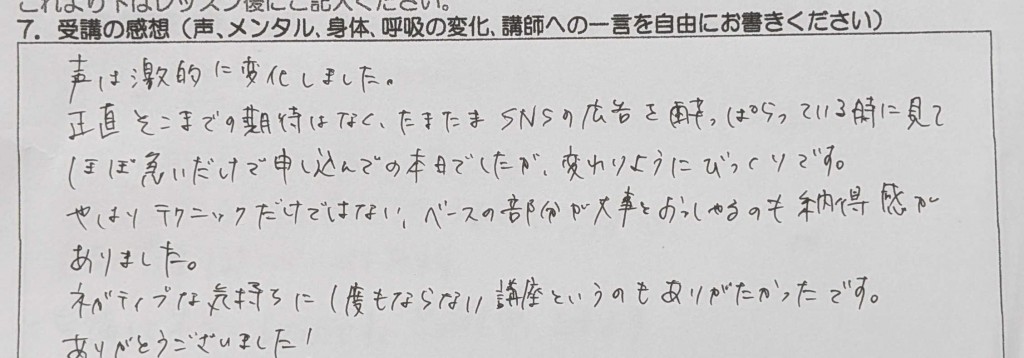 これより下はレッスン後にご記入ください。
7. 受講の感想（声、メンタル、身体、呼吸の変化、講師への一言を自由にお書きください）
声は激的に変化しました。
正直そこまでの期待はなく、たまたまSNSの広告を酔っぱらっている時に見て
ほぼ急いだけで申し込んでの本日でしたが、変わりようにびっくりです。
やはりテクニックだけではない、ベースの部分が大事とおっしゃるのも納得感が
ありました。
ネガティブな気持ちに1度もならない講座というのもありがたかったです。
ありがとうございました!